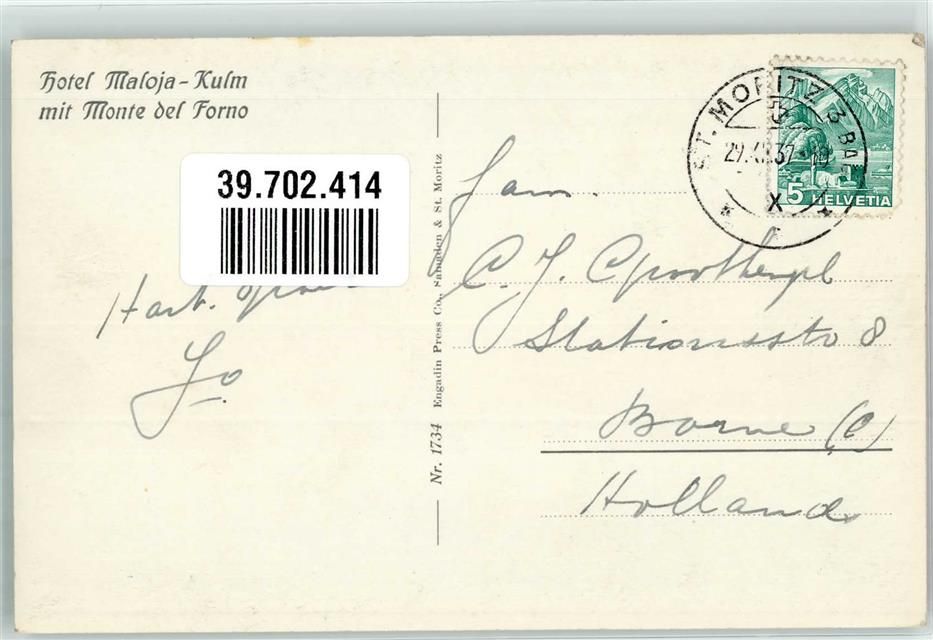 Hotel Maloja-Kulm
mit Monte del Forno
39.702.414
Hart.
Jo
Nr. 1734 Engadin Press Co., Samaden & St. Moritz
ST. MORITZ 3 BAD
29. 37
X
5 HELVETIA
Fam.
C. J.
8
Borne (O)
Holland